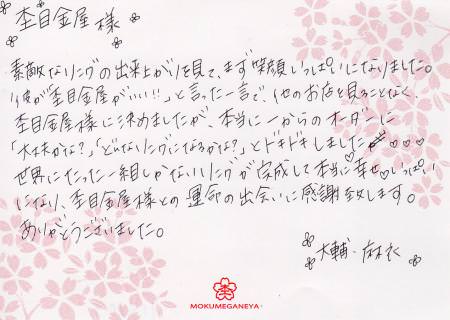 杢目金屋様
素敵なリングの出来上がりを見て、まず笑顔いっぱいになりました。
彼が"杢目金屋がいい!!"と言った一言で、他のお店を見ることなく、
杢目金屋様に決めましたが、本当に一からのオーダーに
「大丈夫かな?」「どんなリングになるかな?」とドキドキしました
世界にたった一組しかないリングが完成して本当に幸せいっぱい
になり、杢目金屋様との運命の出会いに感謝致します。
ありがとうございました。
大輔・麻衣
MOKUMEGANEYA